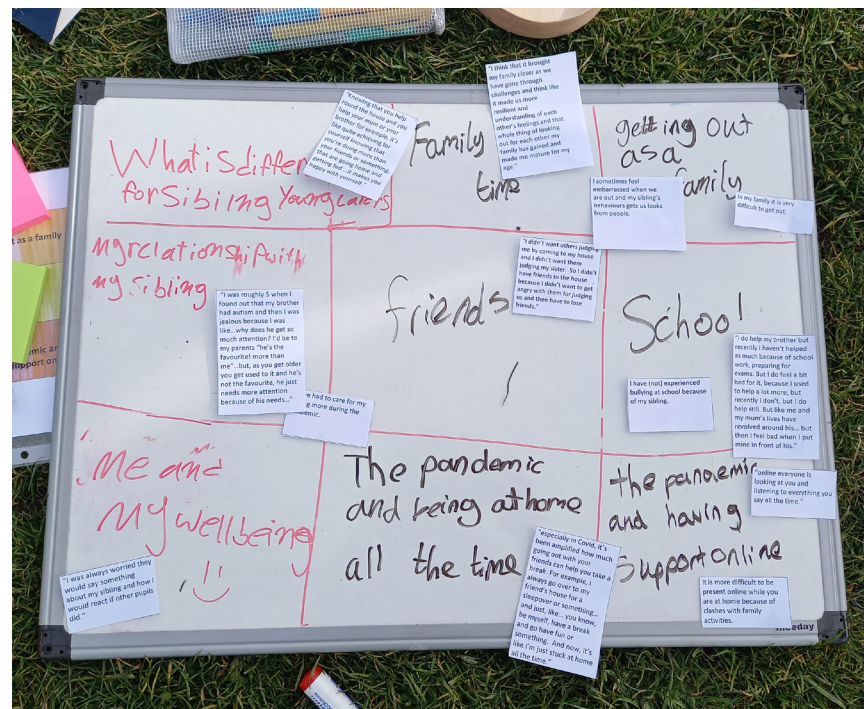 What is differ
for Sibilng Young carers
"Knowing that you help
round the house and you
help your mum or your
brother for example, it's
like quite achieving for
yourself knowing that
you're doing more than
your friends or something,
that are going home and
getting fed ...it makes you
happy with yourself."
Family
time
"I think that it brought
my family closer as we
have gone through
challenges and think like
it made us more
resilient and
understanding of each
other's feelings and that
whole thing of looking
out for each other my
family has gained and
made me mature for my
age."
getting out
as a
family
I sometimes feel
embarrassed when we
are out and my sibling's
behaviours gets us looks
from people.
In my family it is very
difficult to get out.
t as a family
my relationship with
my sibling
"I was roughly 5 when I
found out that my brother
had autism and then I was
jealous because I was
like...why does he get so
much attention? I'd be to
my parents "he's the
favourite! more than
me"...but, as you get older
you get used to it and he's
not the favourite, he just
needs more attention
because of his needs..."
friends
"I didn't want others judging
me by coming to my house
and I didn't want them
judging my sister. So I didn't
have friends to the house
because I didn't want to get
angry with them for judging
us and then have to lose
friends."
School
"I do help my brother but
recently I haven't helped
as much because of school
work, preparing for
exams. But I do feel a bit
bad for it, because I used
to help a lot more, but
recently I don't, but I do
help still. But like me and
my mum's lives have
revolved around his... but
then I feel bad when I put
mine in front of his."
I have (not) experienced
bullying at school because
of my sibling.
had to care for my
more during the
Me and
my wellbeing
"I was always worried they
would say something
about my sibling and how I
would react if other pupils
did."
The pandemic
and being at home
all the time
"especially in Covid, it's
been amplified how much
going out with your
friends can help you take a
break. For example, I
always go over to my
friend's house for a
sleepover or something...
and just, like... you know,
be myself, have a break
and go have fun or
something. And now, it's
like I'm just stuck at home
all the time."
the pandemic
and having
support online
"online everyone is
looking at you and
listening to everything you
say all the time."
It is more difficult to be
present online while you
are at home because of
clashes with family
activities.